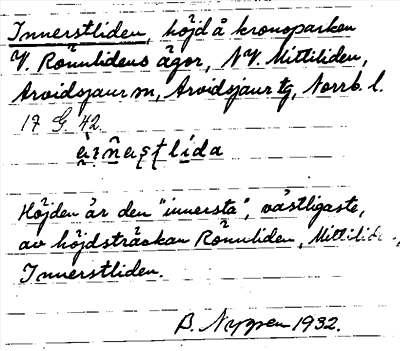 Innerstliden, höjd å kronoparken
V. Rönnlidens ägor, NV. Mittiliden,
Arvidsjaur sn, Arvidsjaur tg, Norrb. l.
17 G 42.
Höjden är den "innersta", västligaste,
av höjdsträckan Rönnliden, Mittiliden,
Innerstliden.
B. Nyman 1932.